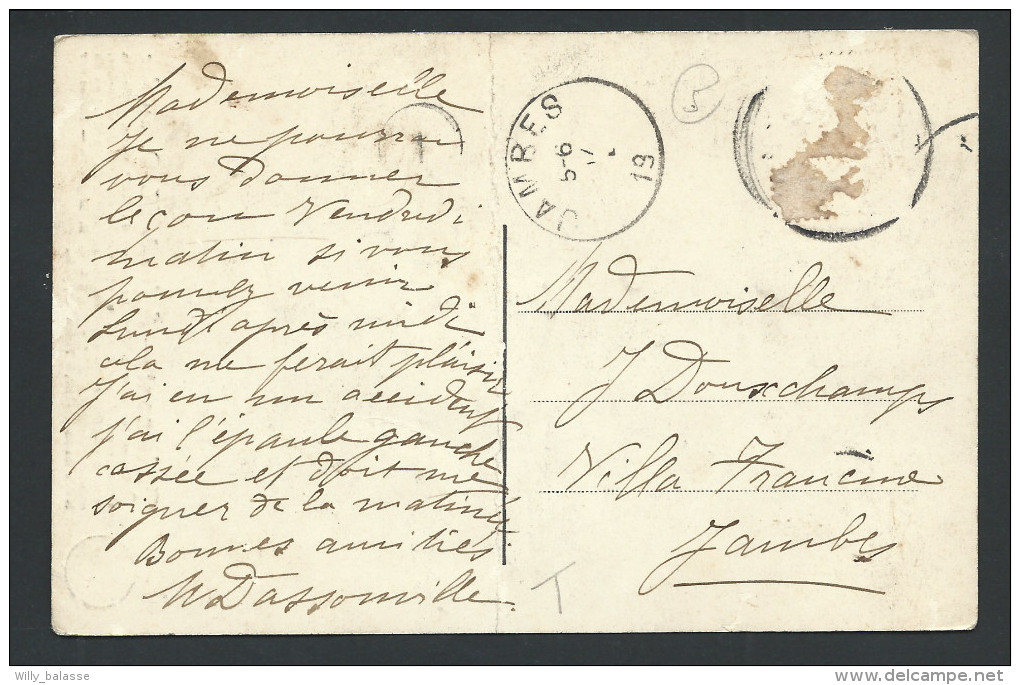 Mademoiselle
Je ne pourrai
vous donner
leçon Vendredi
matin si vous
pouvez venir
Lundi après midi
cela me ferait plaisir
J'ai eu un accident
j'ai l'épaule gauche
cassée et doit me
soigner de la matinée
Bonnes amitiés
M Dassonville
JAMBES
5-6
17
19
5
Mademoiselle
J Douxchamps
Villa Francine
Jambes
T
Willy_balasse
delcampe.net